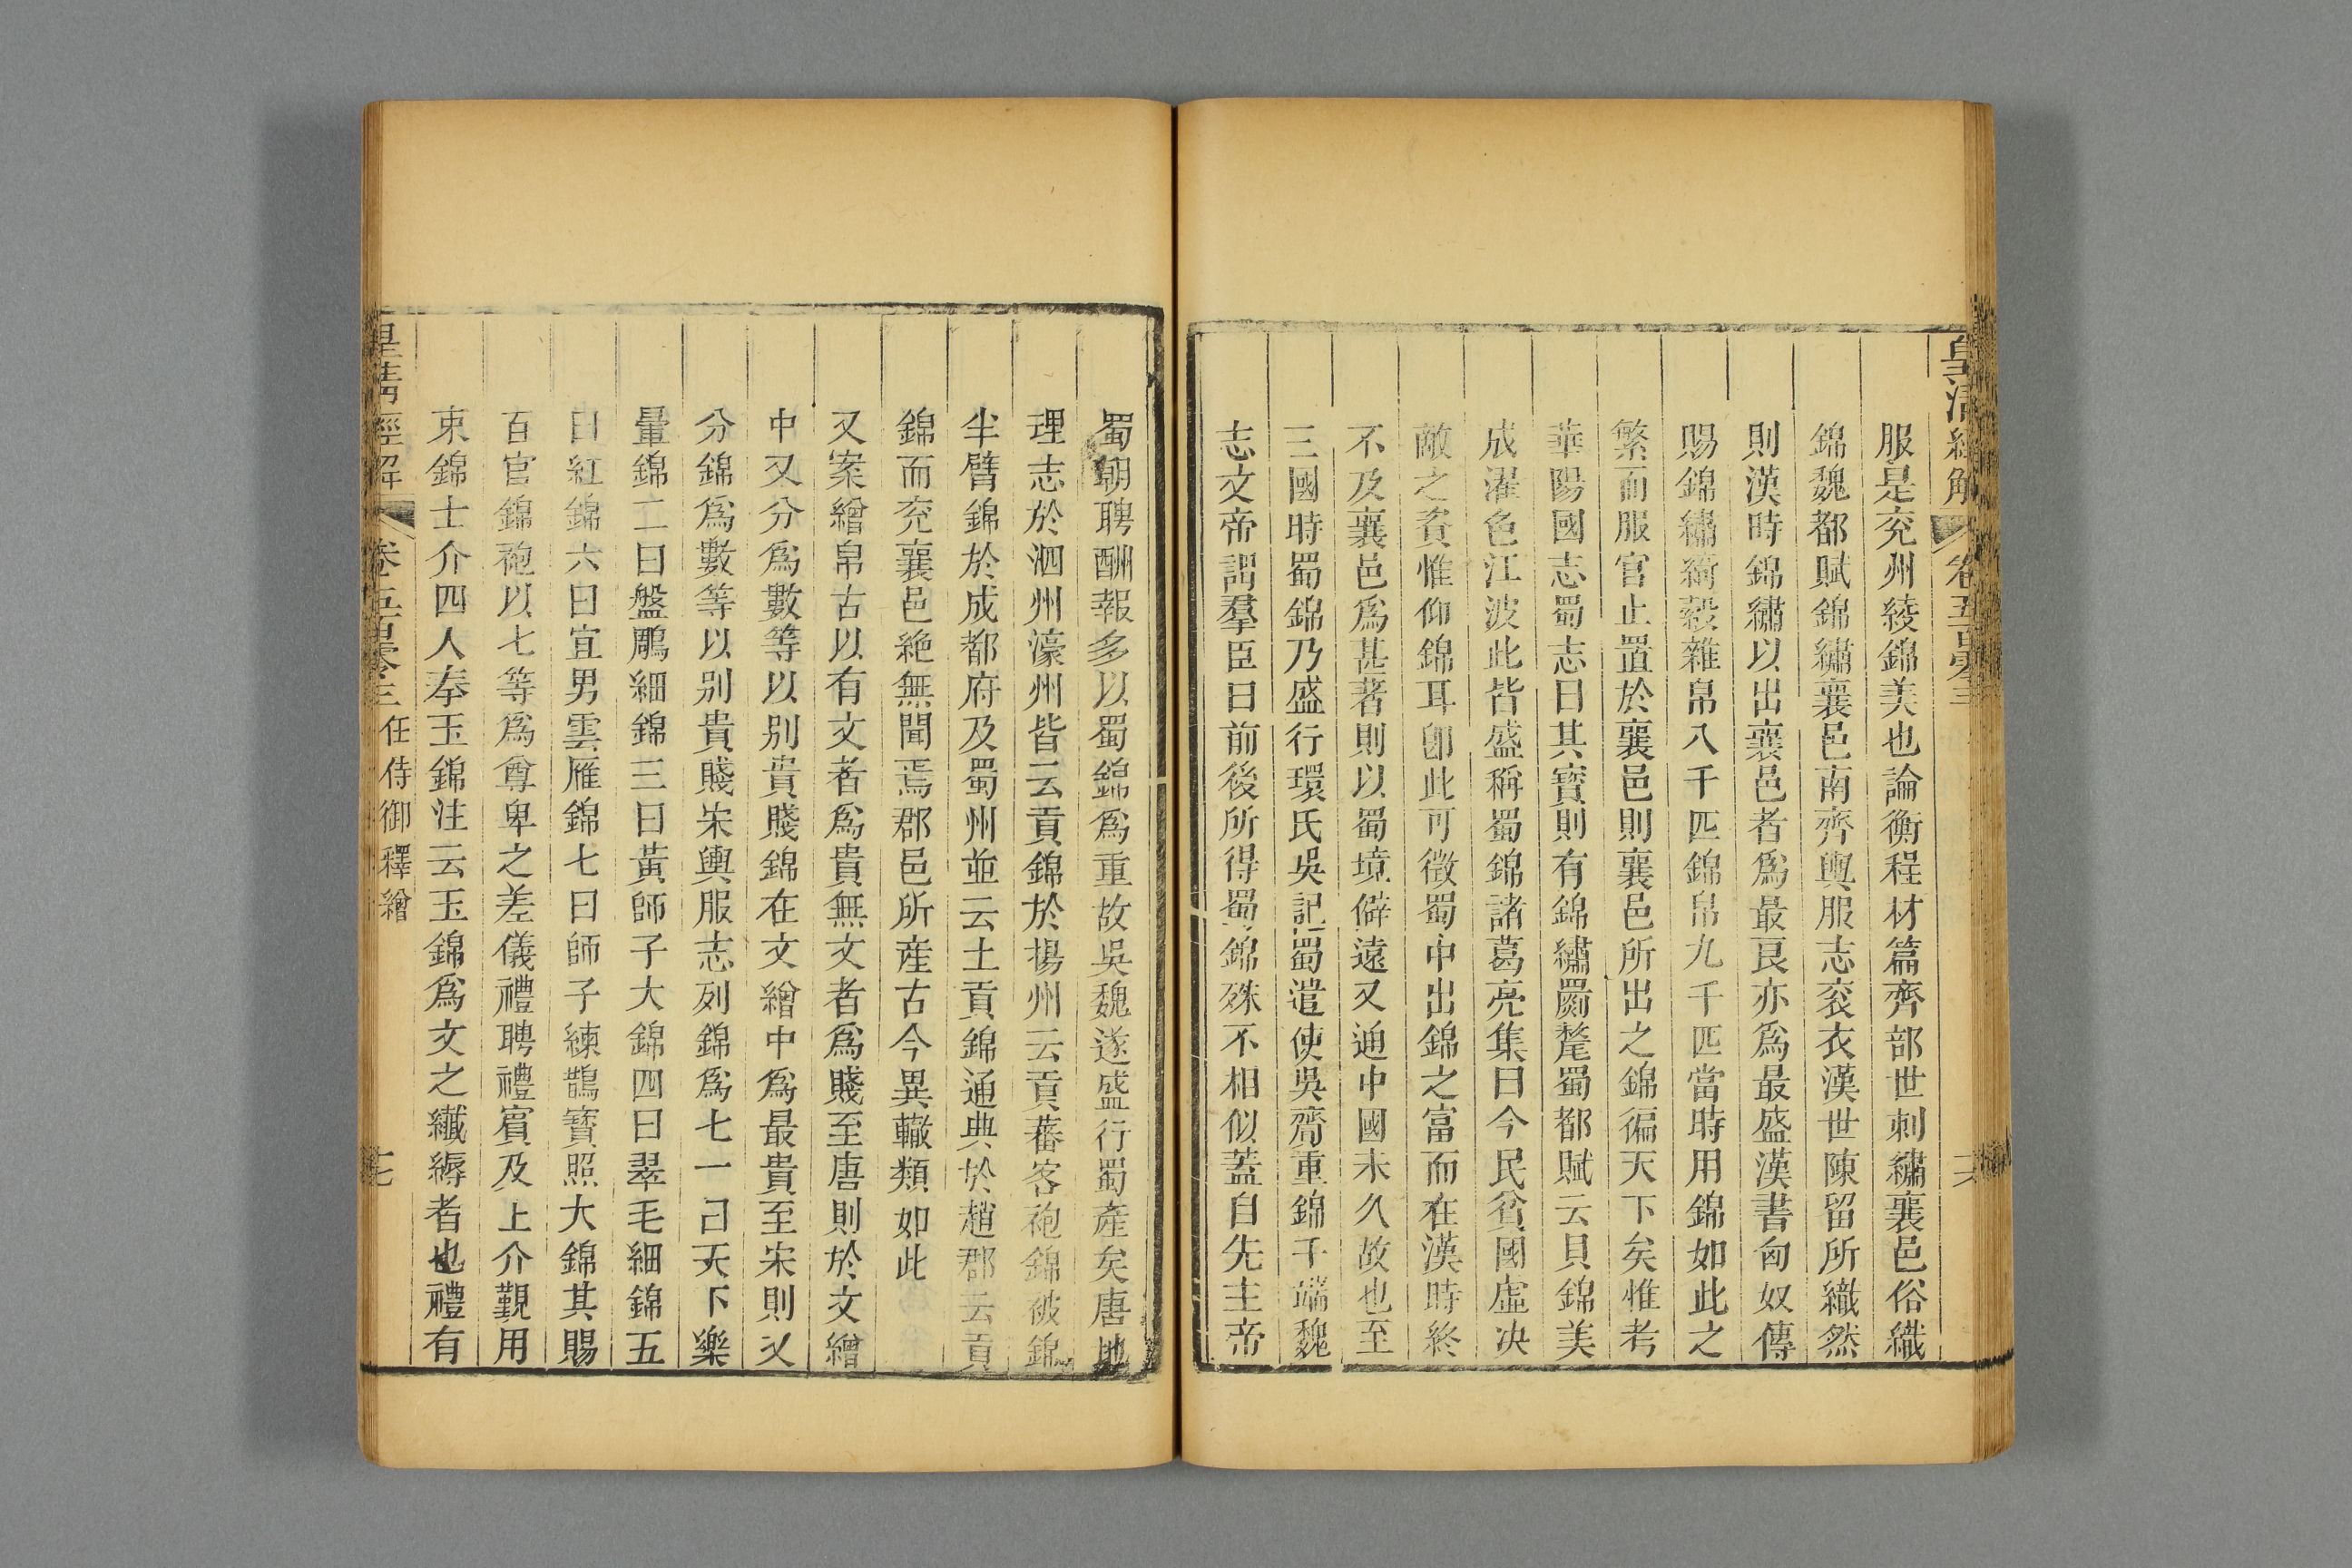 皇清經解 卷五百三
服是兖州綾錦美也論衡程材篇齊部世刺繡襄邑俗織
錦魏都賦錦繡襄邑南齊輿服志衮衣漢世陳留所織然
則漢時錦繡以出襄邑者爲最良亦爲最盛漢書匈奴傳
賜錦繡綺縠雜帛八千匹錦帛九千匹當時用錦如此之
繁而服官止置於襄邑則襄邑所出之錦徧天下矣惟考
華陽國志蜀志曰其寶則有錦繡罽氂蜀都賦云貝錦美
成濯色江波此皆盛稱蜀錦諸葛亮集曰今民貧國虛决
敵之資惟仰錦耳卽此可徵蜀中出錦之富而在漢時終
不及襄邑爲甚著則以蜀境僻遠又通中國未久故也至
三國時蜀錦乃盛行環氏吳記蜀遣使吳齎重錦千端魏
志文帝詔羣臣曰前後所得蜀錦殊不相似蓋自先主帝
蜀朝聘酬報多以蜀錦爲重故吳魏遂盛行蜀產矣唐地
理志於泗州濠州皆云貢錦於揚州云貢蕃客袍錦被錦
半臂錦於成都府及蜀州並云土貢錦通典於趙郡云貢
錦而兖襄邑絶無聞焉郡邑所産古今異轍類如此
又案繒帛古以有文者爲貴無文者爲賤至唐則於文繒
中又分爲數等以别貴賤錦在文繒中爲最貴至宋則又
分錦爲數等以别貴賤宋輿服志列錦爲七一曰天下樂
暈錦二曰盤鵰細錦三曰黃師子大錦四曰翠毛細錦五
曰紅錦六曰宜男雲雁錦七曰師子練鵲寶照大錦其賜
百官錦袍以七等爲尊卑之差儀禮聘禮賓及上介覿用
束錦士介四人奉玉錦注云玉錦爲文之纖縟者也禮有
皇清經解 卷五百三 任侍御釋繒 十七